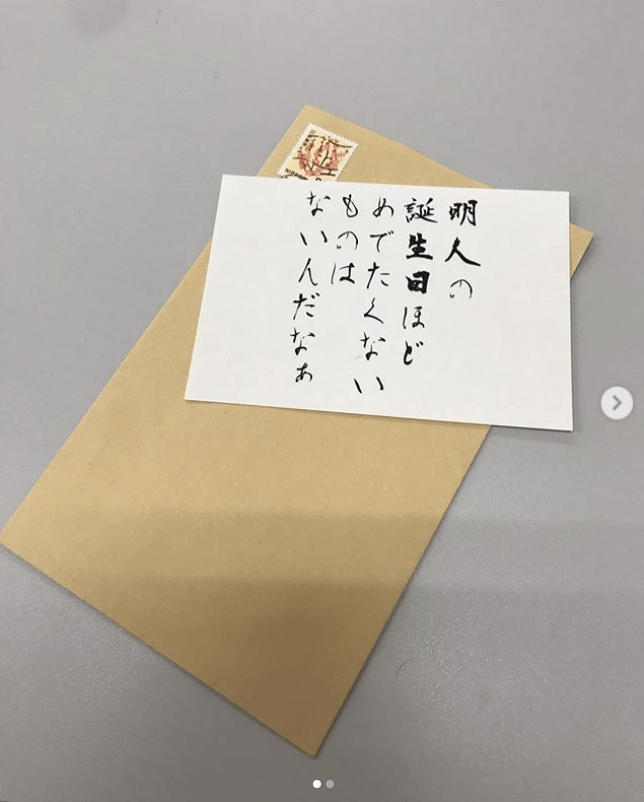 明人の
誕生日ほど
めでたくない
ものは
ないんだなぁ
NIPPON